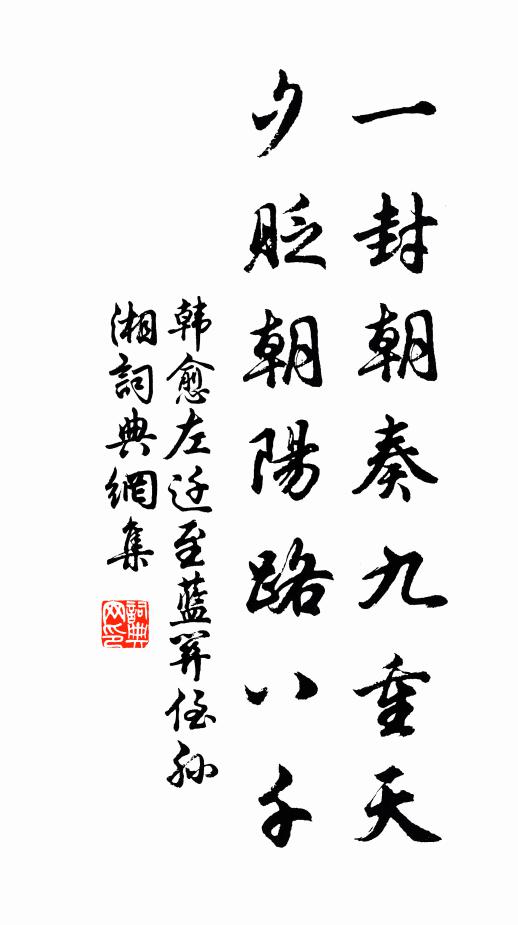 一封朝奏九重天
夕貶朝陽路八千
韩愈左迁至藍関侄孙
湘詞典網集
詞典网印